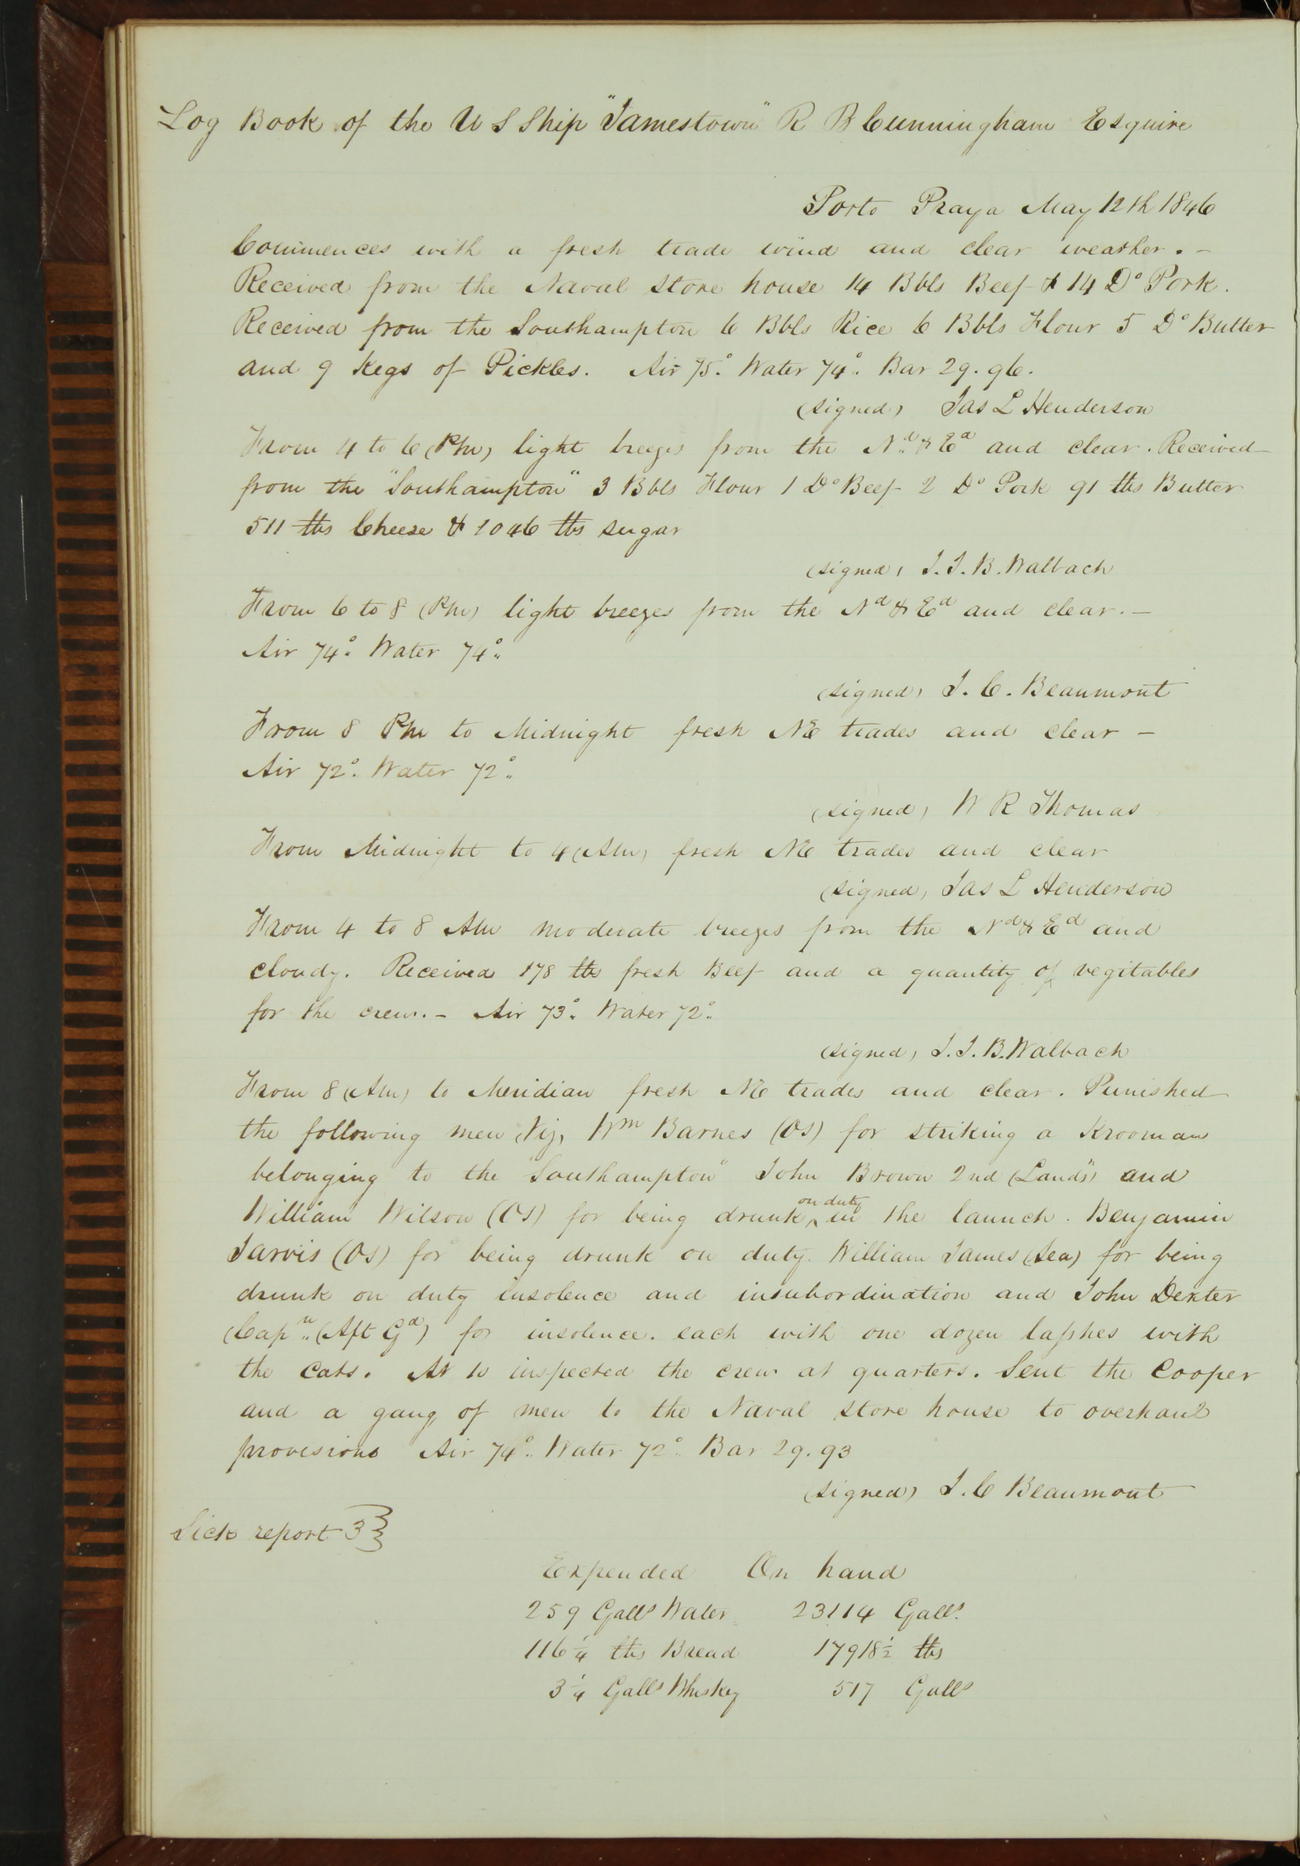 Log Book of the U S Ship "Jamestown" R B Cunningham Esquire
Porto Praya May 12th 1846
Commences with a fresh trade wind and clear weather. –
Received from the Naval store house 14 Bbls Beef & 14 Do Pork.
Received from the Southampton 6 Bbls Rice 6 Bbls Flour 5 Do Butter
and 9 Kegs of Pickles. Air 75° Water 74° Bar 29.96.
(signed) Jas L Henderson
From 4 to 6 (PM) light breezes from the Nd & Ed and clear. Received
from the "Southampton" 3 Bbls Flour 1 Do Beef 2 Do Pork 91 lbs Butter
511 lbs Cheese & 1046 lbs sugar
(signed) J. J. B. Walbach
From 6 to 8 (PM) light breezes from the Nd & Ed and clear. –
Air 74° Water 74°
(signed) J. C. Beaumont
From 8 PM to Midnight fresh NE trades and clear –
Air 72° Water 72°
(signed) W R Thomas
From Midnight to 4 (AM) fresh NE trades and clear
(signed) Jas L Henderson
From 4 to 8 AM moderate breezes from the Nd & Ed and
cloudy. Received 178 lbs fresh Beef and a quantity of vegitables
for the crew. – Air 73° Water 72°
(signed) J. J. B. Walbach
From 8 (AM) to Meridian fresh NE trades and clear. Punished
the following men Viz, Wm Barnes (OS) for striking a Krooman
belonging to the "Southampton" John Brown 2nd (Lands) and
William Wilson (OS) for being drunk on duty in the launch. Benjamin
Jarvis (OS) for being drunk on duty. William James (Sea) for being
drunk on duty insolence and insubordination and John Dexter
(Capn (Aft Gd) for insolence. each with one dozen lashes with
the cats. At 10 inspected the crew at quarters. Sent the Cooper
and a gang of men to the Naval store house to overhaul
provisions Air 74° Water 72° Bar 29.93
(signed) J. C Beaumont
Sick report 3
Expended On hand
259 Galls Water 23114 Galls
116 1/4 lbs Bread 17918 1/2 lbs
3 1/4 Galls Whiskey 517 Galls